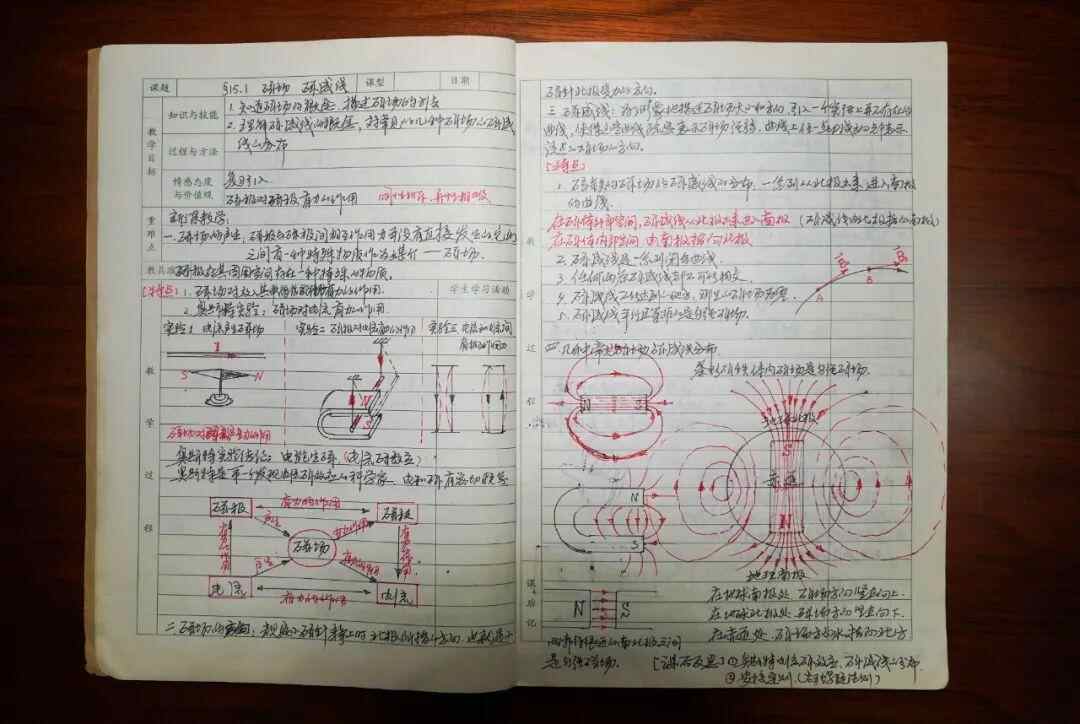 课题 §15.1 磁场 磁感线 课型 日期
教学目标
知识与技能
1. 知道磁场的概念、描述磁场的
2. 理解磁感线的概念，对常见的几种磁场的磁感
线的分布
过程与方法
情感态度与价值观
复习引入
磁极对磁极有力的作用 同性相斥、异性相吸
重难点
新课教学：
一、磁场的产生：磁极与磁极间相互作用力并没有直接发生的，它们
之间有一种特殊物质作为媒介——磁场。
教具
磁极在其周围空间存在一种特殊的物质。
[特点] 1. 磁场对放入其中的有力的作用.
学生学习活动
2. 奥斯特实验：磁场对电流有力的作用.
实验1 电流产生磁场
实验二 磁极对电流有力的作用
实验三 电流和电流间
有相互作用力
I
S N
N
S
磁场对有力的作用
奥斯特实验结论：电能生磁.（电流磁效应）
奥斯特是第一个发现电流磁效应的科学家. 电和磁有密切联系
教学过程
磁极 有力的作用 磁极
产生 有力的作用
磁场
产生 有力的作用
电流 有力的作用 电流
二、磁场的方向：规定小磁针静止时北极所指的方向，
磁针北极受力的方向.
三、磁感线：为了形象地描述磁场大小和方向，引入一个实际上并不存在的
曲线，使得这些曲线能表示磁场强弱，曲线上任一点的切线的方向表示
该点的磁场的方向。
[特点]
1. 磁铁的磁场的磁感线的分布，一系列从北极出来，进入南极
的曲线.
在磁体外部空间，磁感线从北极出来进入南极
在磁体内部空间 由南极指向北极
2. 磁感线是一系列闭合曲线.
3. 任何两条磁感线都不可以相交.
4. 磁感线越密的地方，那里的磁场越强.
5. 磁感线平行且等距的是匀强磁场.
A B
四、几种常见的磁场磁感线分布.
条形磁铁体内磁场是匀强磁场.
N S
N
S
地理北极
S
赤道
N
地理南极
教学过程
课后记
N S
两靠得很近的南北极之间
是匀强磁场.
在地球南极处 磁场方向竖直向上.
在地球北极处 磁场方向竖直向下.
在赤道处 磁场方向水平指向北方
[课后反思] ① 奥斯特的电流磁效应，磁感线的分布
② 安培定则.（右手螺旋法则）